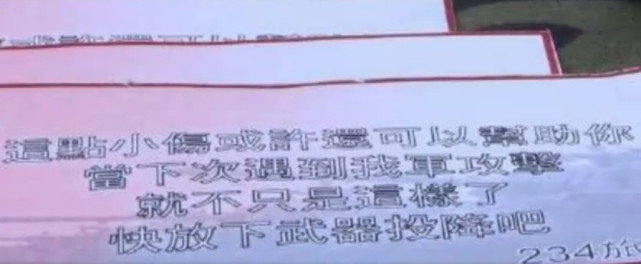 這點小傷或許還可以幫助你
當下次遇到我軍攻擊
就不只是這樣了
快放下武器投降吧
234旅